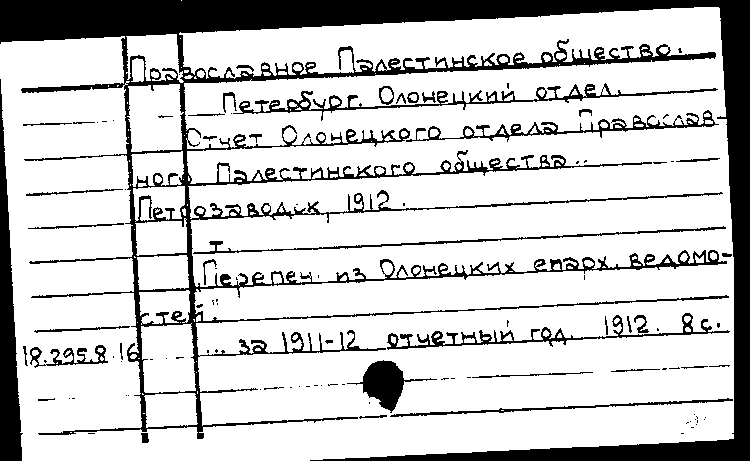 Православное Палестинское общество.
Петербург. Олонецкий отдел.
Отчет Олонецкого отдела Православ-
ного Палестинского общества..
Петрозаводск, 1912.
т.
„Перепеч. из Олонецких епарх. ведомо-
стей".
18.295.8.16 ... за 1911-12 отчетный год. 1912. 8 с.